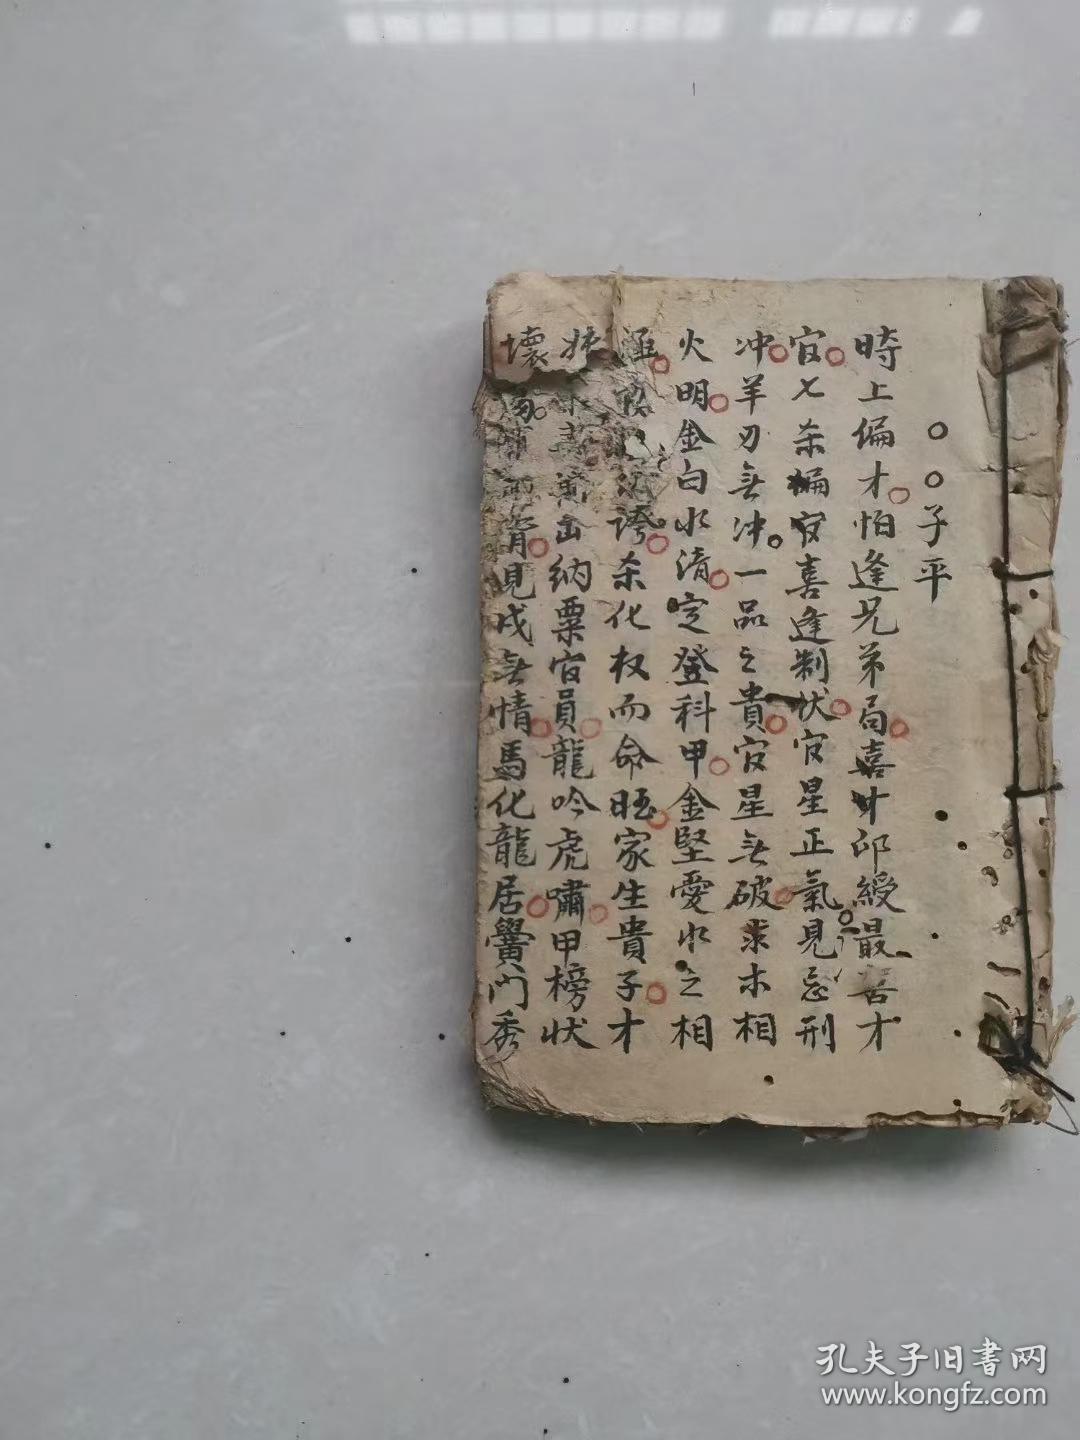 ○○子平
時上偏才怕逢兄弟局喜才印綬最害才
官七杀偏官喜逢制伏官星正氣見忌刑
冲羊刃無冲一品之貴官星無破求木相
火明金白水清定登科甲金堅愛水之相
涵誇杀化权而命旺家生貴子才
出納粟官員龍吟虎嘯甲榜状
壞見戌無情馬化龍居黌門秀
孔夫子旧書网
www.kongfz.com